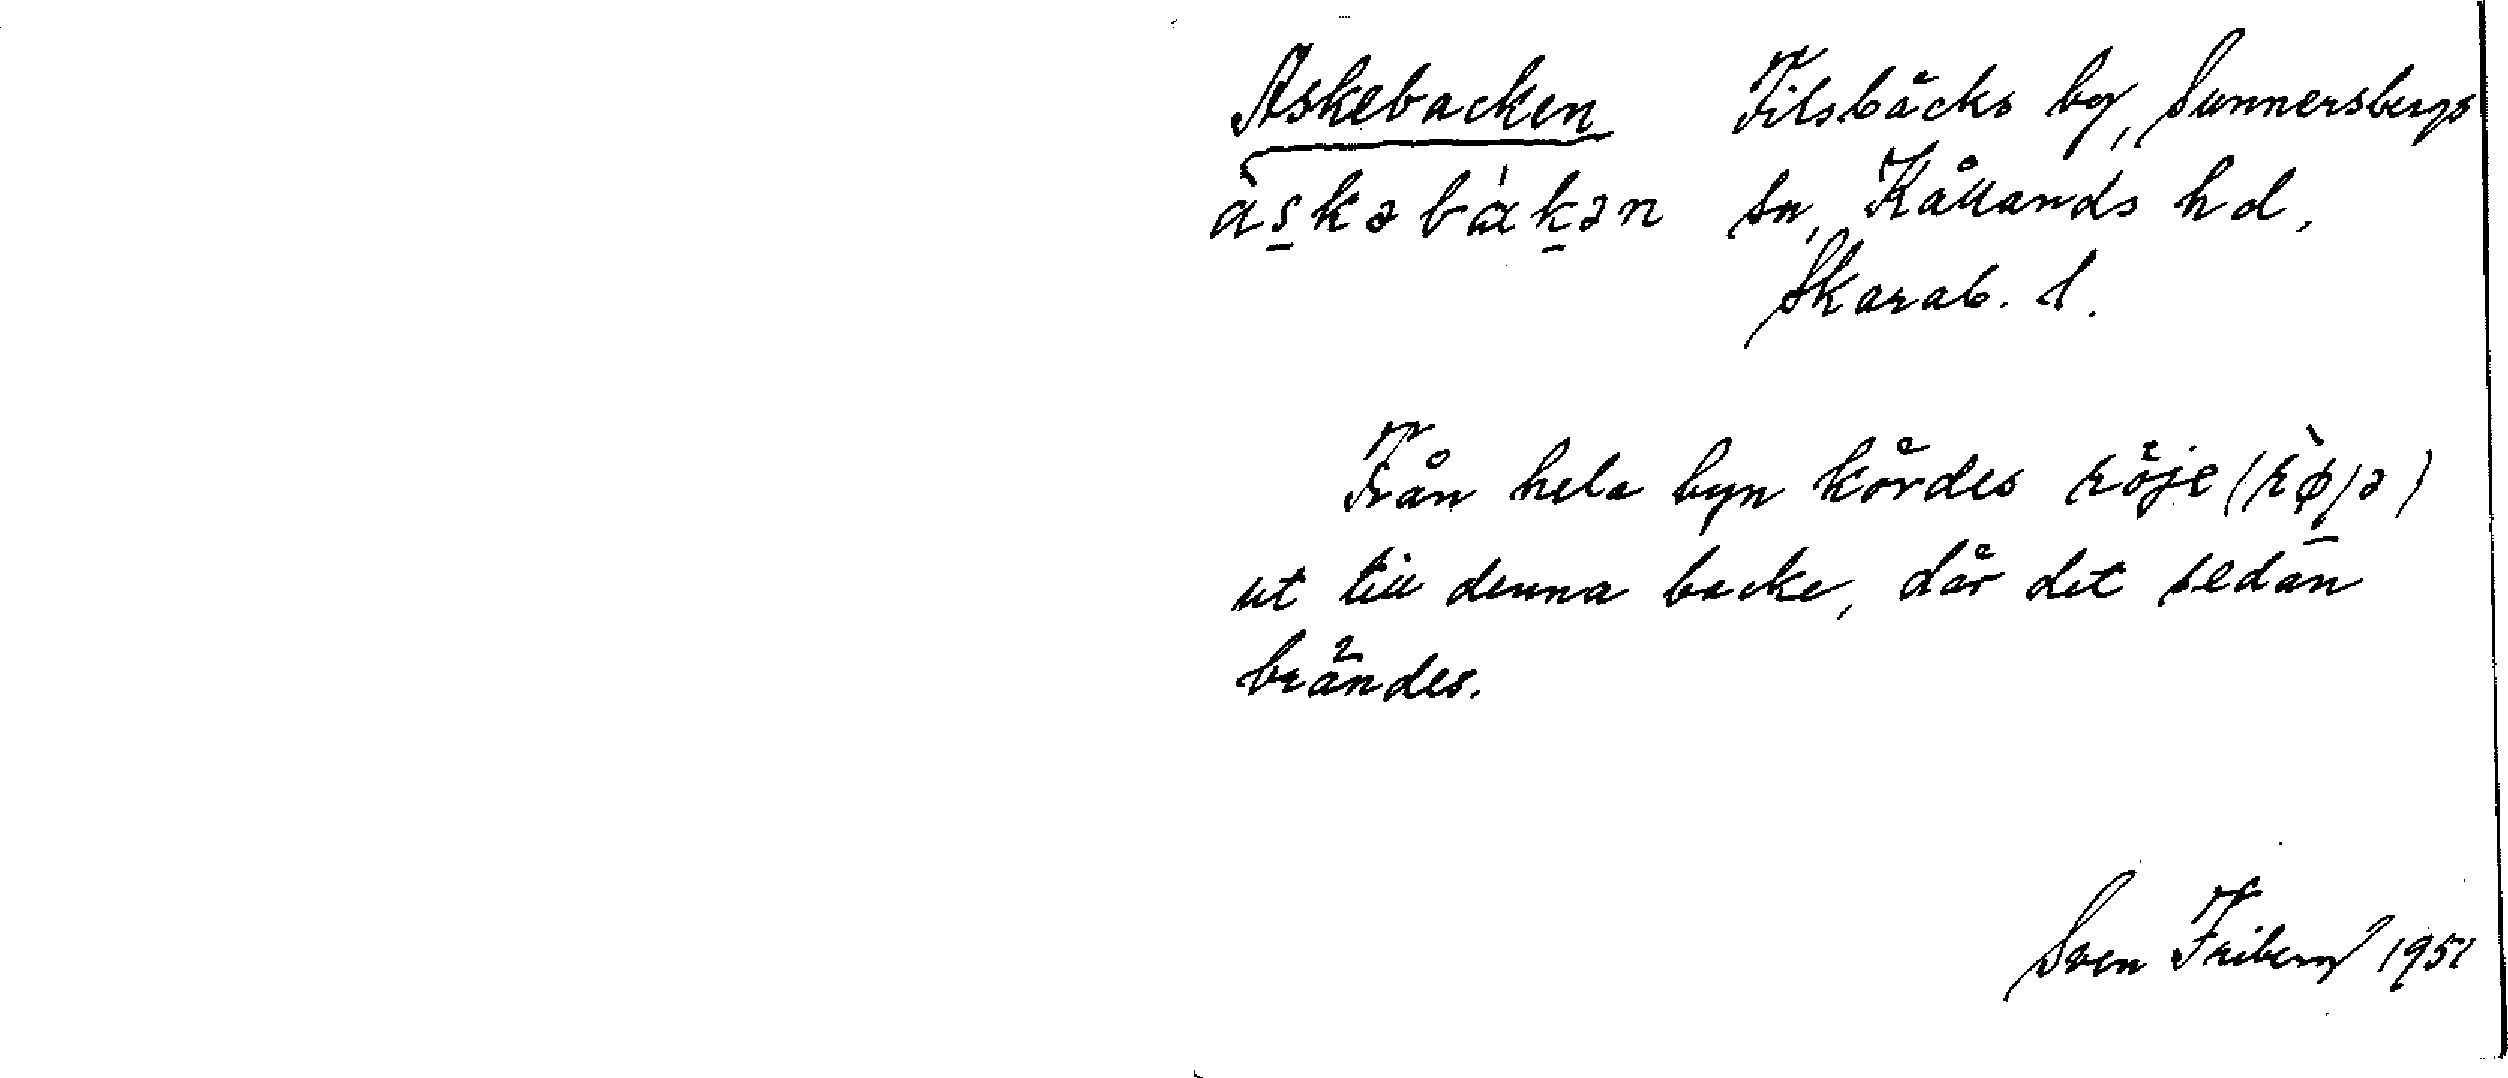 Askebacken Filsbäcks by, Sunnersbergs
àskəbàkən sn, Kållands hd,
Skarab. l.
Från hela byn kördes röje (rø̀jə)
ut till denna backe, där det sedan
brändes.
Sven Friberg 1951